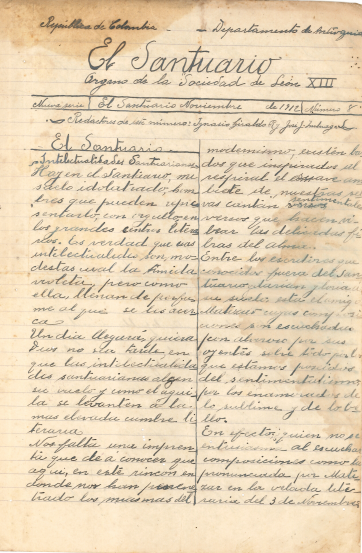 República de Colombia - - Departamento de Antioquia
El Santuario
Organo de la Sociedad de León XIII
Nueva serie | El Santuario Noviembre de 1912 | Número 8
Redactores de este número: Ignacio Giraldo R y José J.
El Santuario
Intelectualidades Santuarianas
Hay en el Santuario, me
dio idolatrado, hom
bres que pueden repre
sentarlo, con orgullo en
los grandes centros litera
rios. Es verdad que esas
intelectualidades son mo
destas cual la tímida
violeta, pero como
ella, llenan de perfu
me al que se les acer
ca
Un dia llegará, quiera
Dios no sea tarde, en
que las intelectualida
des santuarianas alzen
su vuelo y como el águi
la se levanten a la
mas elevada cumbre li
teraria
Nos falta una impren
ta que dé a conocer que
aqui, en este rincon en
donde nos han
trado los miasmas del
modernismo, existen
dos que inspirados al
respirar el am
biente de nuestras
vas cantan sentimentales
versos que hacen vi
brar las delicadas fi
bras del alma.
Entre los escritores
conocidos fuera del San
tuario, tienen
que suelen
Mateus cuyas
nes son escuchadas
con por sus
oyentes, sobre todo por
que estamos poseidos
del sentimentalismo
por los enamorados de
lo sublime y de lo be
llo.
En efecto, quien no se
entusiasma al escuchar
composiciones como la
pronunciada por Mate
us en la velada lite
raria del 3 de Noviembre